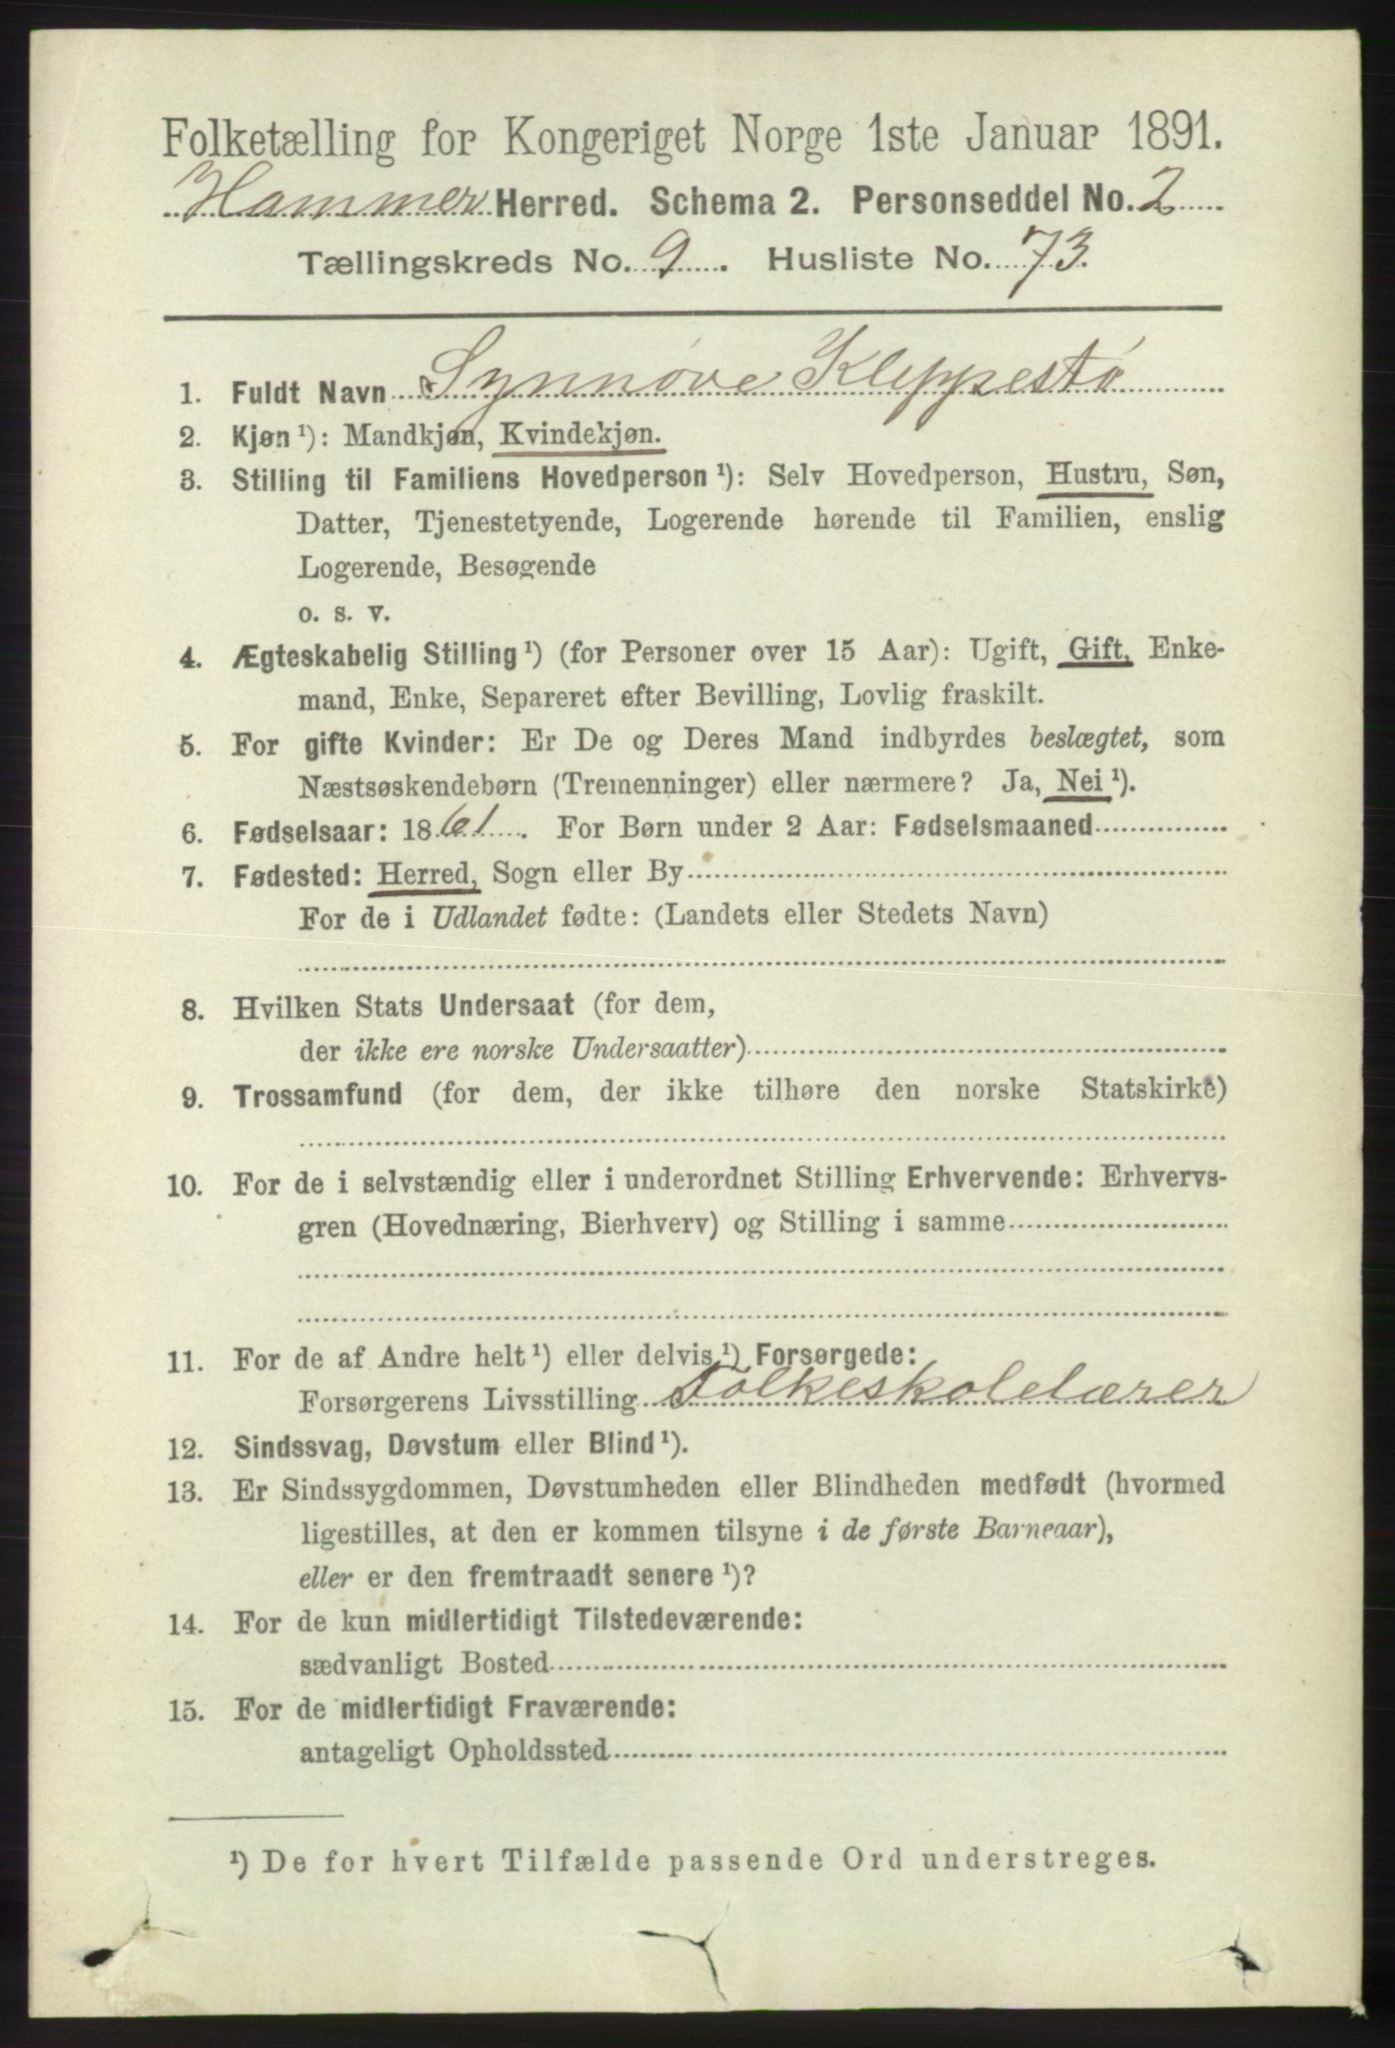 Folketælling for Kongeriget Norge 1ste Januar 1891.
Hammer Herred. Schema 2. Personseddel No. 2
Tællingskreds No. 9. Husliste No. 73.
1. Fuldt Navn Synnøve Kleppestø
2. Kjøn ¹): Mandkjøn, Kvindekjøn.
3. Stilling til Familiens Hovedperson ¹): Selv Hovedperson, Hustru, Søn,
Datter, Tjenestetyende, Logerende hørende til Familien, enslig
Logerende, Besøgende
o. s. v.
4. Ægteskabelig Stilling ¹) (for Personer over 15 Aar): Ugift, Gift, Enke-
mand, Enke, Separeret efter Bevilling, Lovlig fraskilt.
5. For gifte Kvinder: Er De og Deres Mand indbyrdes beslægtet, som
Næstsøskendebørn (Tremenninger) eller nærmere? Ja, Nei ¹).
6. Fødselsaar: 1861. For Børn under 2 Aar: Fødselsmaaned
7. Fødested: Herred, Sogn eller By
For de i Udlandet fødte: (Landets eller Stedets Navn)
8. Hvilken Stats Undersaat (for dem,
der ikke ere norske Undersaatter)
9. Trossamfund (for dem, der ikke tilhøre den norske Statskirke)
10. For de i selvstændig eller i underordnet Stilling Erhvervende: Erhvervs-
gren (Hovednæring, Bierhverv) og Stilling i samme
11. For de af Andre helt ¹) eller delvis ¹) Forsørgede:
Forsørgerens Livsstilling Folkeskolelærer
12. Sindssvag, Døvstum eller Blind ¹).
13. Er Sindssygdommen, Døvstumheden eller Blindheden medfødt (hvormed
ligestilles, at den er kommen tilsyne i de første Barneaar),
eller er den fremtraadt senere ¹)?
14. For de kun midlertidigt Tilstedeværende:
sædvanligt Bosted
15. For de midlertidigt Fraværende:
antageligt Opholdssted
¹) De for hvert Tilfælde passende Ord understreges.